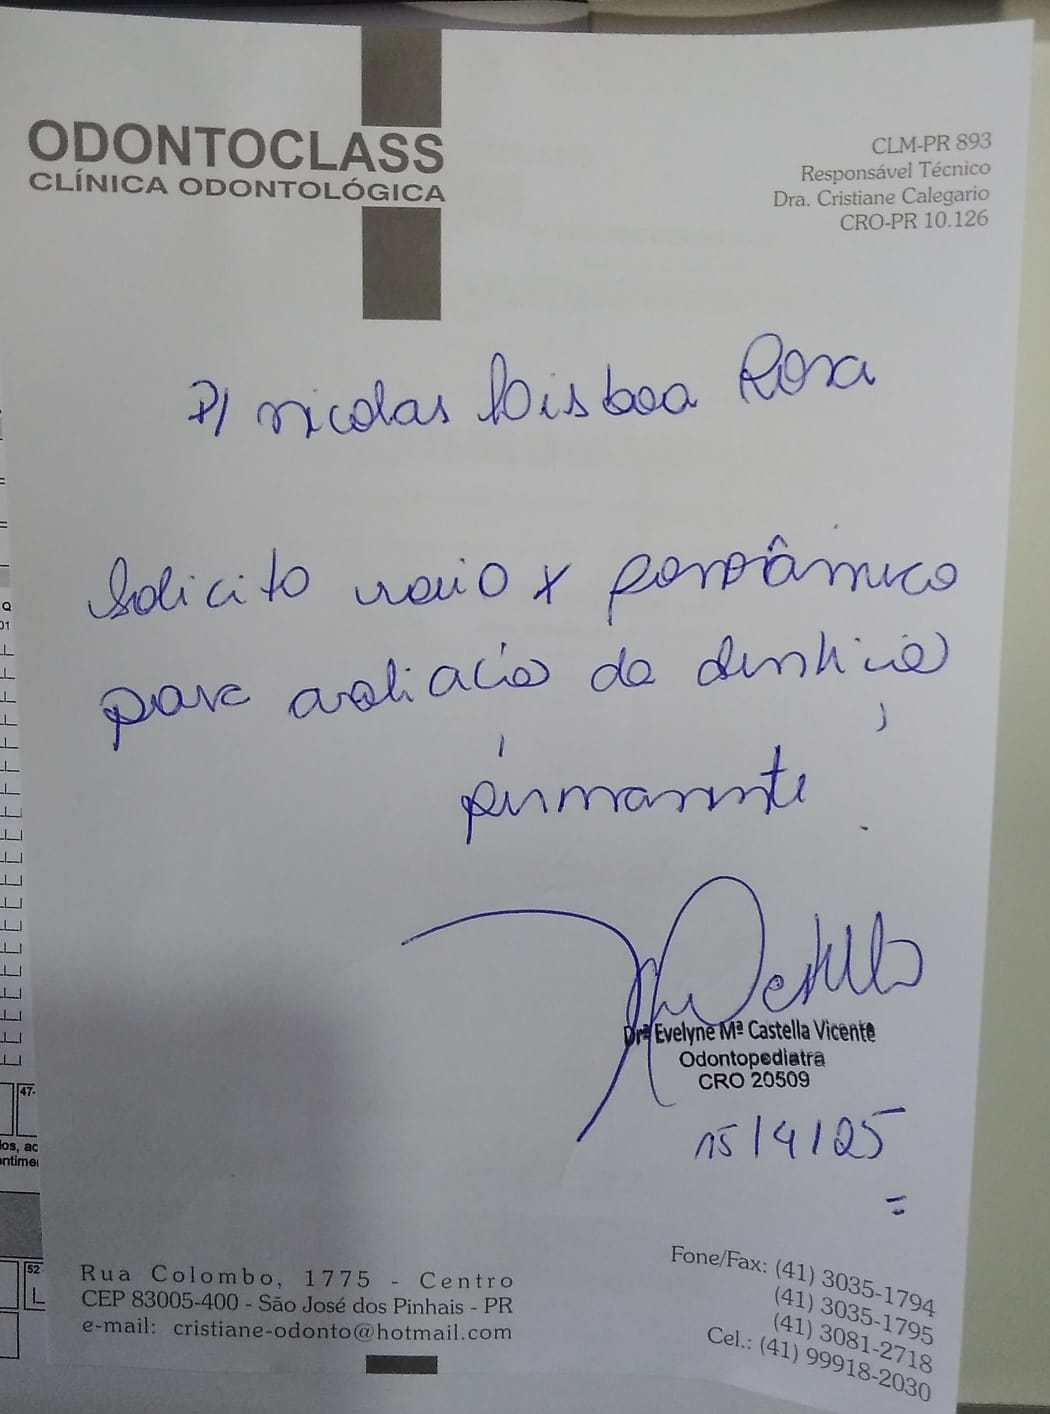 ODONTOCLASS
CLÍNICA ODONTOLÓGICA
CLM-PR 893
Responsável Técnico
Dra. Cristiane Calegario
CRO-PR 10.126
P/ Nicolas Lisboa Rosa
Solicito raio x panorâmico
para avaliação da dentição
permanente.
Drª Evelyne Mª Castella Vicente
Odontopediatra
CRO 20509
15/4/25
Rua Colombo, 1775 - Centro
CEP 83005-400 - São José dos Pinhais - PR
e-mail: cristiane-odonto@hotmail.com
Fone/Fax: (41) 3035-1794
(41) 3035-1795
(41) 3081-2718
Cel.: (41) 99918-2030
47-
52